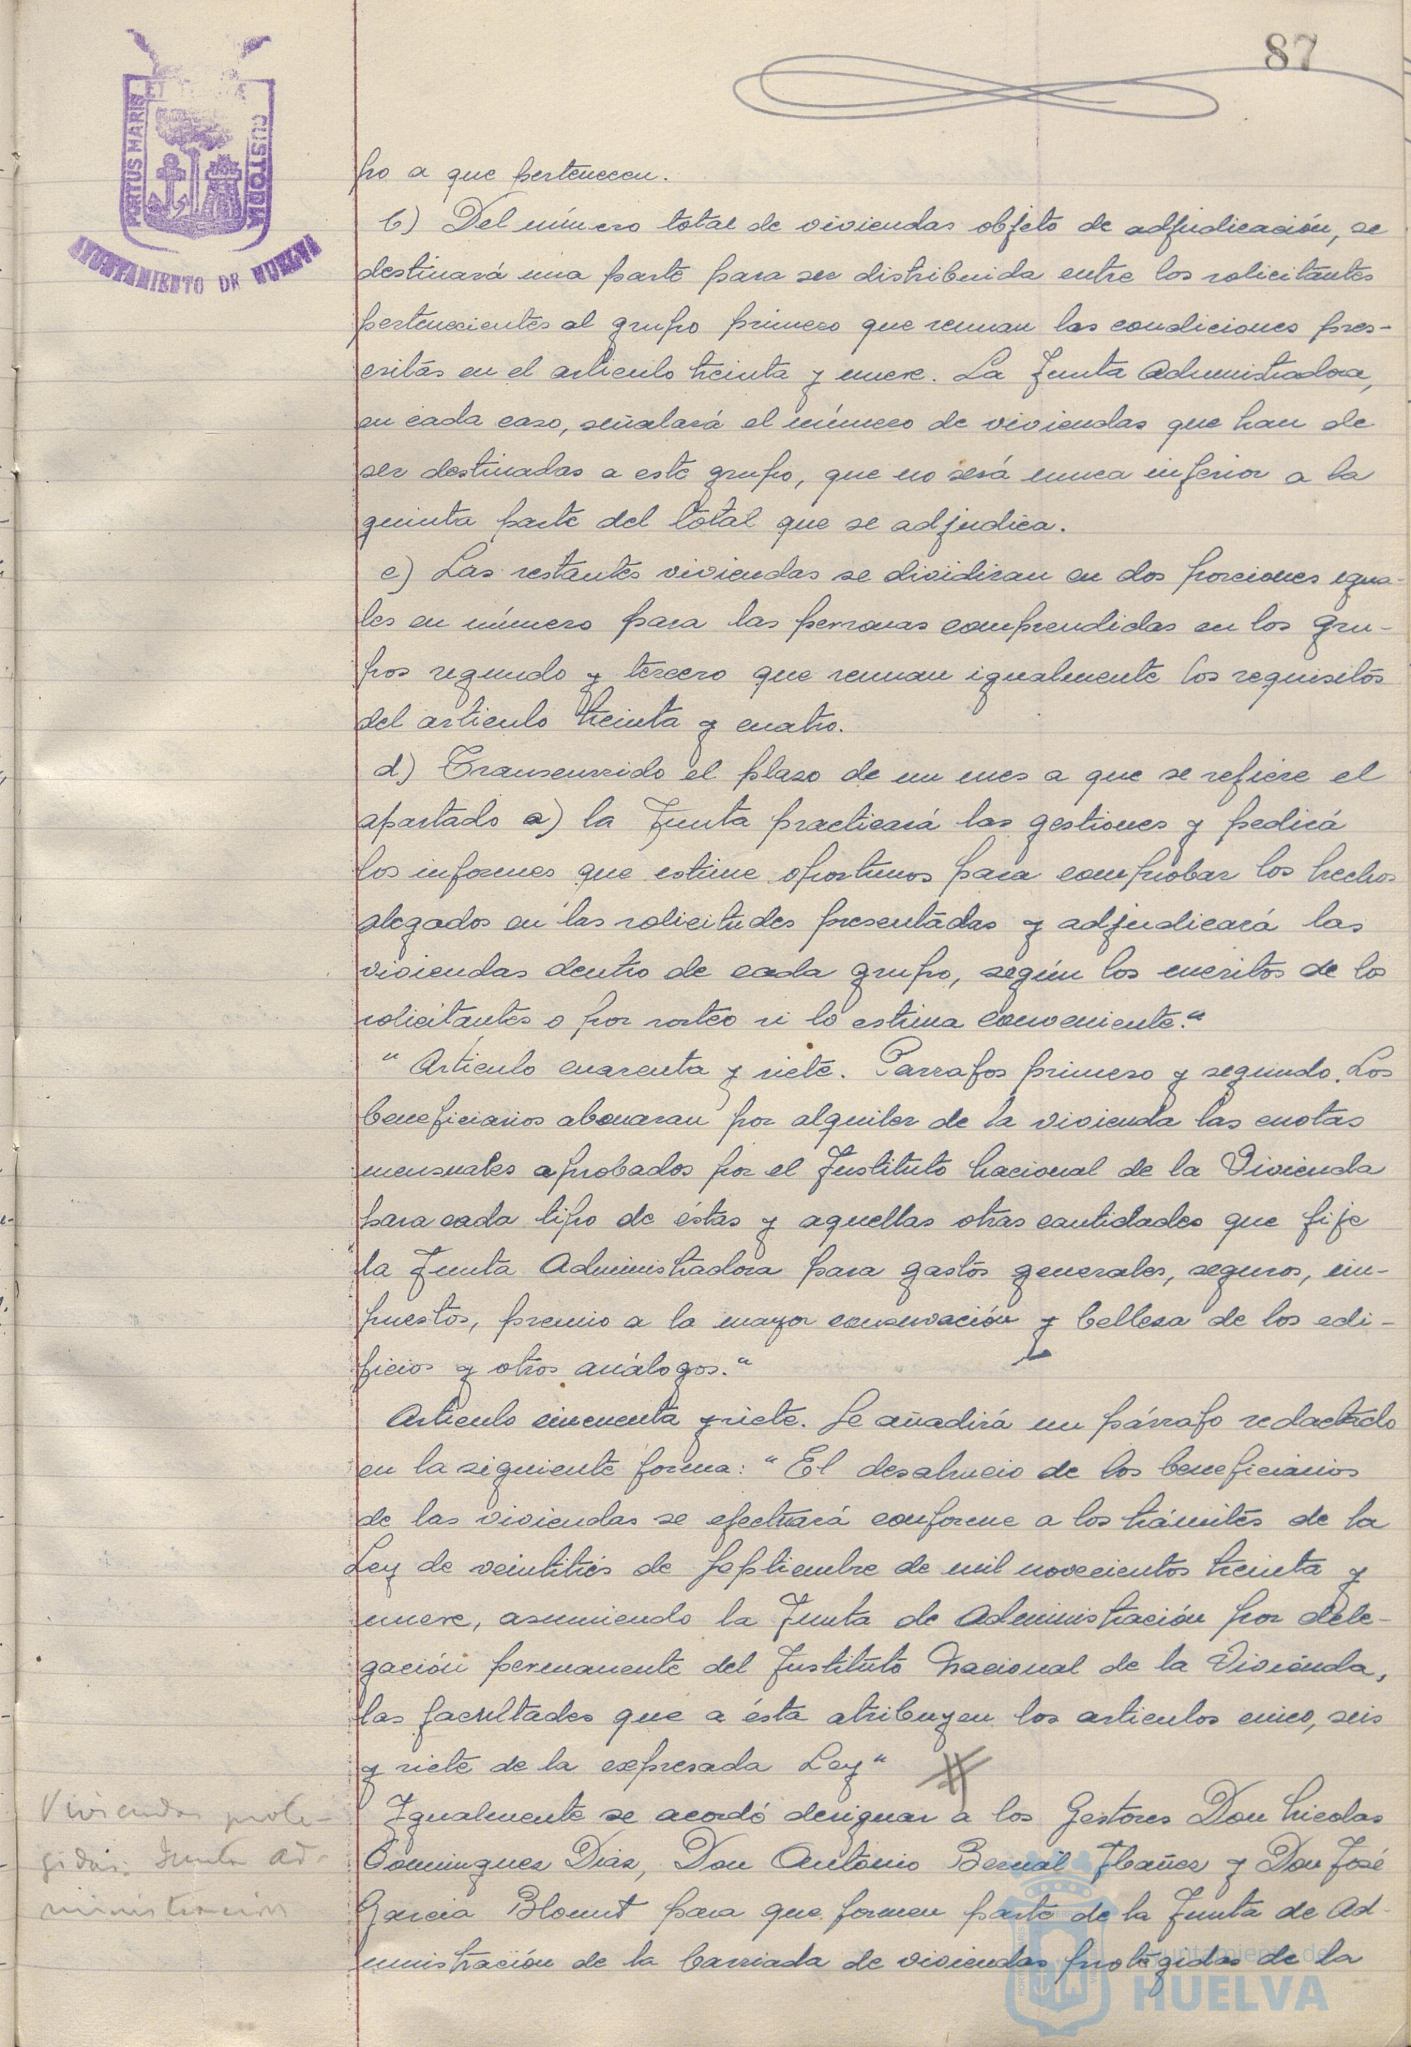 87
PORTUS MARIS ET TERRAE CUSTODIA
AYUNTAMIENTO DE HUELVA
po a que pertenecen.
b) Del número total de viviendas objeto de adjudicación, se
destinará una parte para ser distribuida entre los solicitantes
pertenecientes al grupo primero que reunan las condiciones pres-
critas en el articulo treinta y nueve. La Junta Administradora,
en cada caso, señalará el número de viviendas que han de
ser destinadas a este grupo, que no será nunca inferior a la
quinta parte del total que se adjudica.
c) Las restantes viviendas se dividiran en dos porciones igua-
les en número para las personas comprendidas en los gru-
pos segundo y tercero que reunan igualmente los requisitos
del articulo treinta y cuatro.
d) Transcurrido el plazo de un mes a que se refiere el
apartado a) la Junta practicará las gestiones y pedirá
los informes que estime oportunos para comprobar los hechos
alegados en las solicitudes presentadas y adjudicará las
viviendas dentro de cada grupo, según los meritos de los
solicitantes o por sorteo si lo estima conveniente."
"Articulo cuarenta y siete. Parrafos primero y segundo. Los
beneficiarios abonaran por alquiler de la vivienda las cuotas
mensuales aprobados por el Instituto Nacional de la Vivienda
para cada tipo de éstas y aquellas otras cantidades que fije
la Junta Administradora para gastos generales, seguros, im-
puestos, premio a la mayor conservación y belleza de los edi-
ficios y otros análogos."
Articulo cincuenta y siete. Se añadirá un párrafo redactado
en la siguiente forma: "El desahucio de los beneficiarios
de las viviendas se efectuará conforme a los trámites de la
Ley de veintitrés de Septiembre de mil novecientos treinta y
nueve, asumiendo la Junta de Administración por dele-
gación permanente del Instituto Nacional de la Vivienda,
las facultades que a ésta atribuyen los articulos cinco, seis
y siete de la expresada Ley"
Viviendas prote-
gidas. Junta Ad-
ministración
Igualmente se acordó designar a los Gestores Don Nicolas
Dominguez Diaz, Don Antonio Bernal Ibañez y Don José
Garcia Blount para que formen parte de la Junta de Ad-
ministración de la barriada de viviendas protegidas de la
Ayuntamiento de
HUELVA